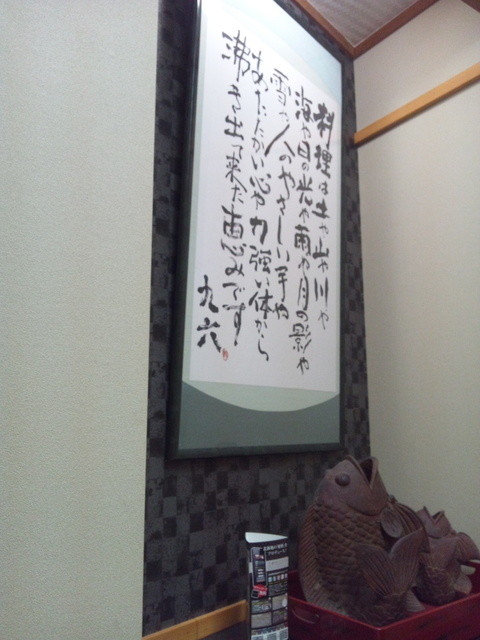 料理は土や山や川や
海や日の光や雨や月の影や
雪や人のやさしい手や
あたたかい心や力強い体から
沸き出て来た恵みです
九六